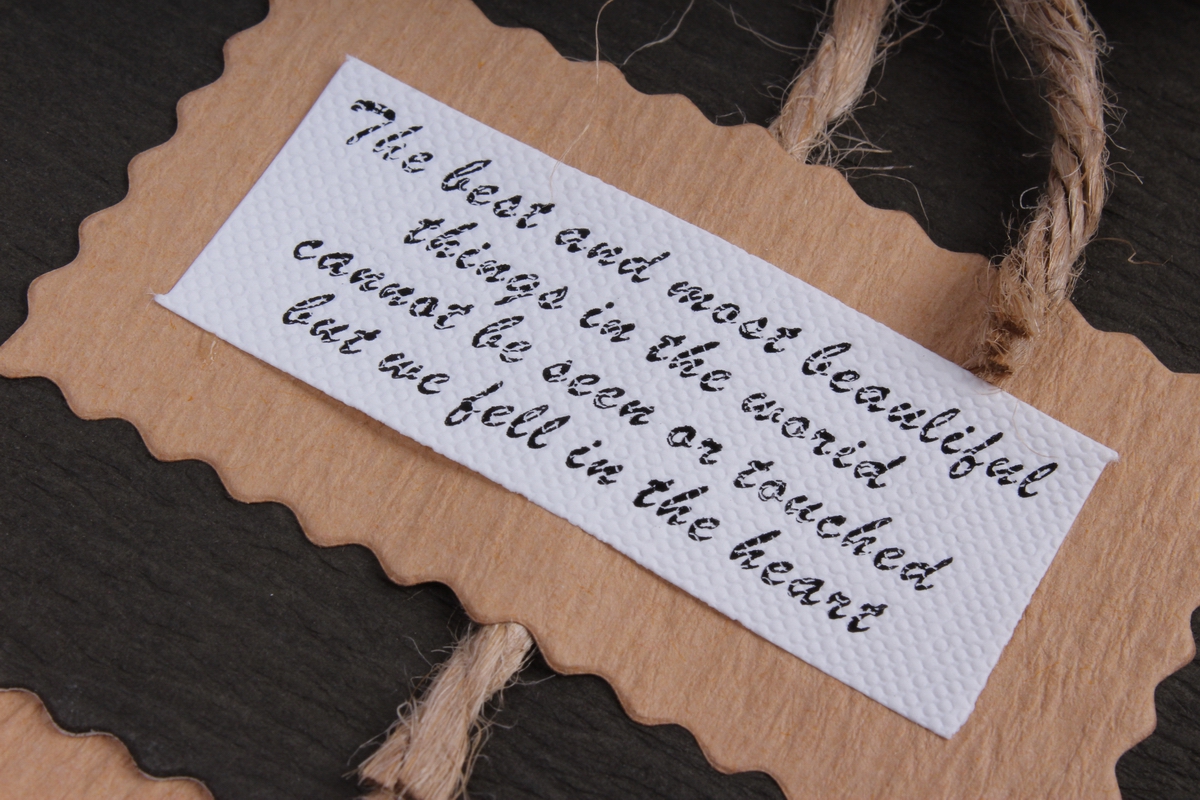 The best and most beautiful
things in the world
cannot be seen or touched
but we fell in the heart